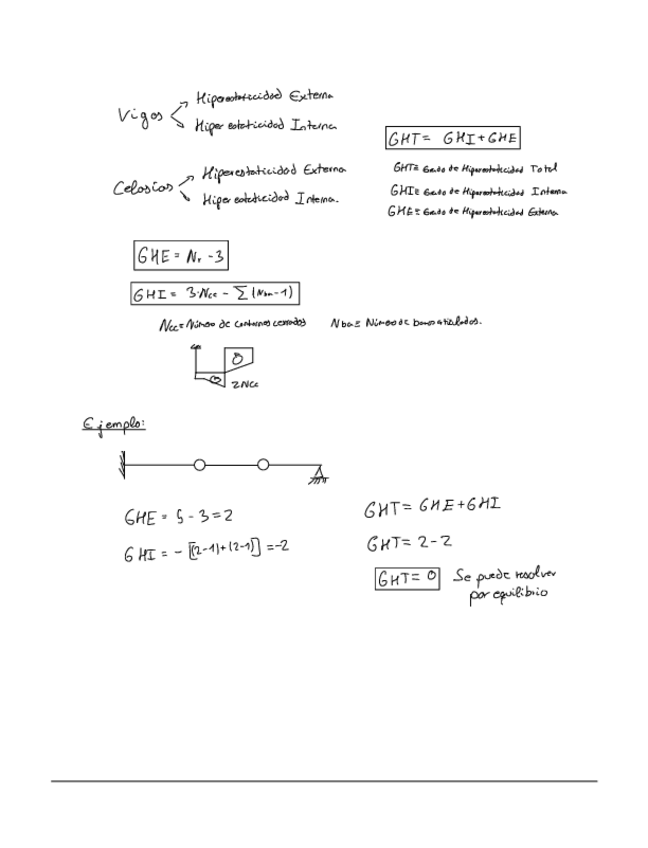 Vigas
Hiperestaticidad Externa
Hiperestaticidad Interna
GHT = GHI + GHE
Celosias
Hiperestaticidad Externa
Hiperestaticidad Interna.
GHT ≡ Grado de Hiperestaticidad Total
GHI ≡ Grado de Hiperestaticidad Interna
GHE ≡ Grado de Hiperestaticidad Externa
GHE = Nr - 3
GHI = 3·Ncc - Σ(Nba-1)
Ncc ≡ Número de contornos cerrados
Nba ≡ Número de barras articuladas.
2Ncc
Ejemplo:
GHE = 5 - 3 = 2
GHI = - [(2-1)+(2-1)] = -2
GHT = GHE + GHI
GHT = 2 - 2
GHT = 0
Se puede resolver
por equilibrio